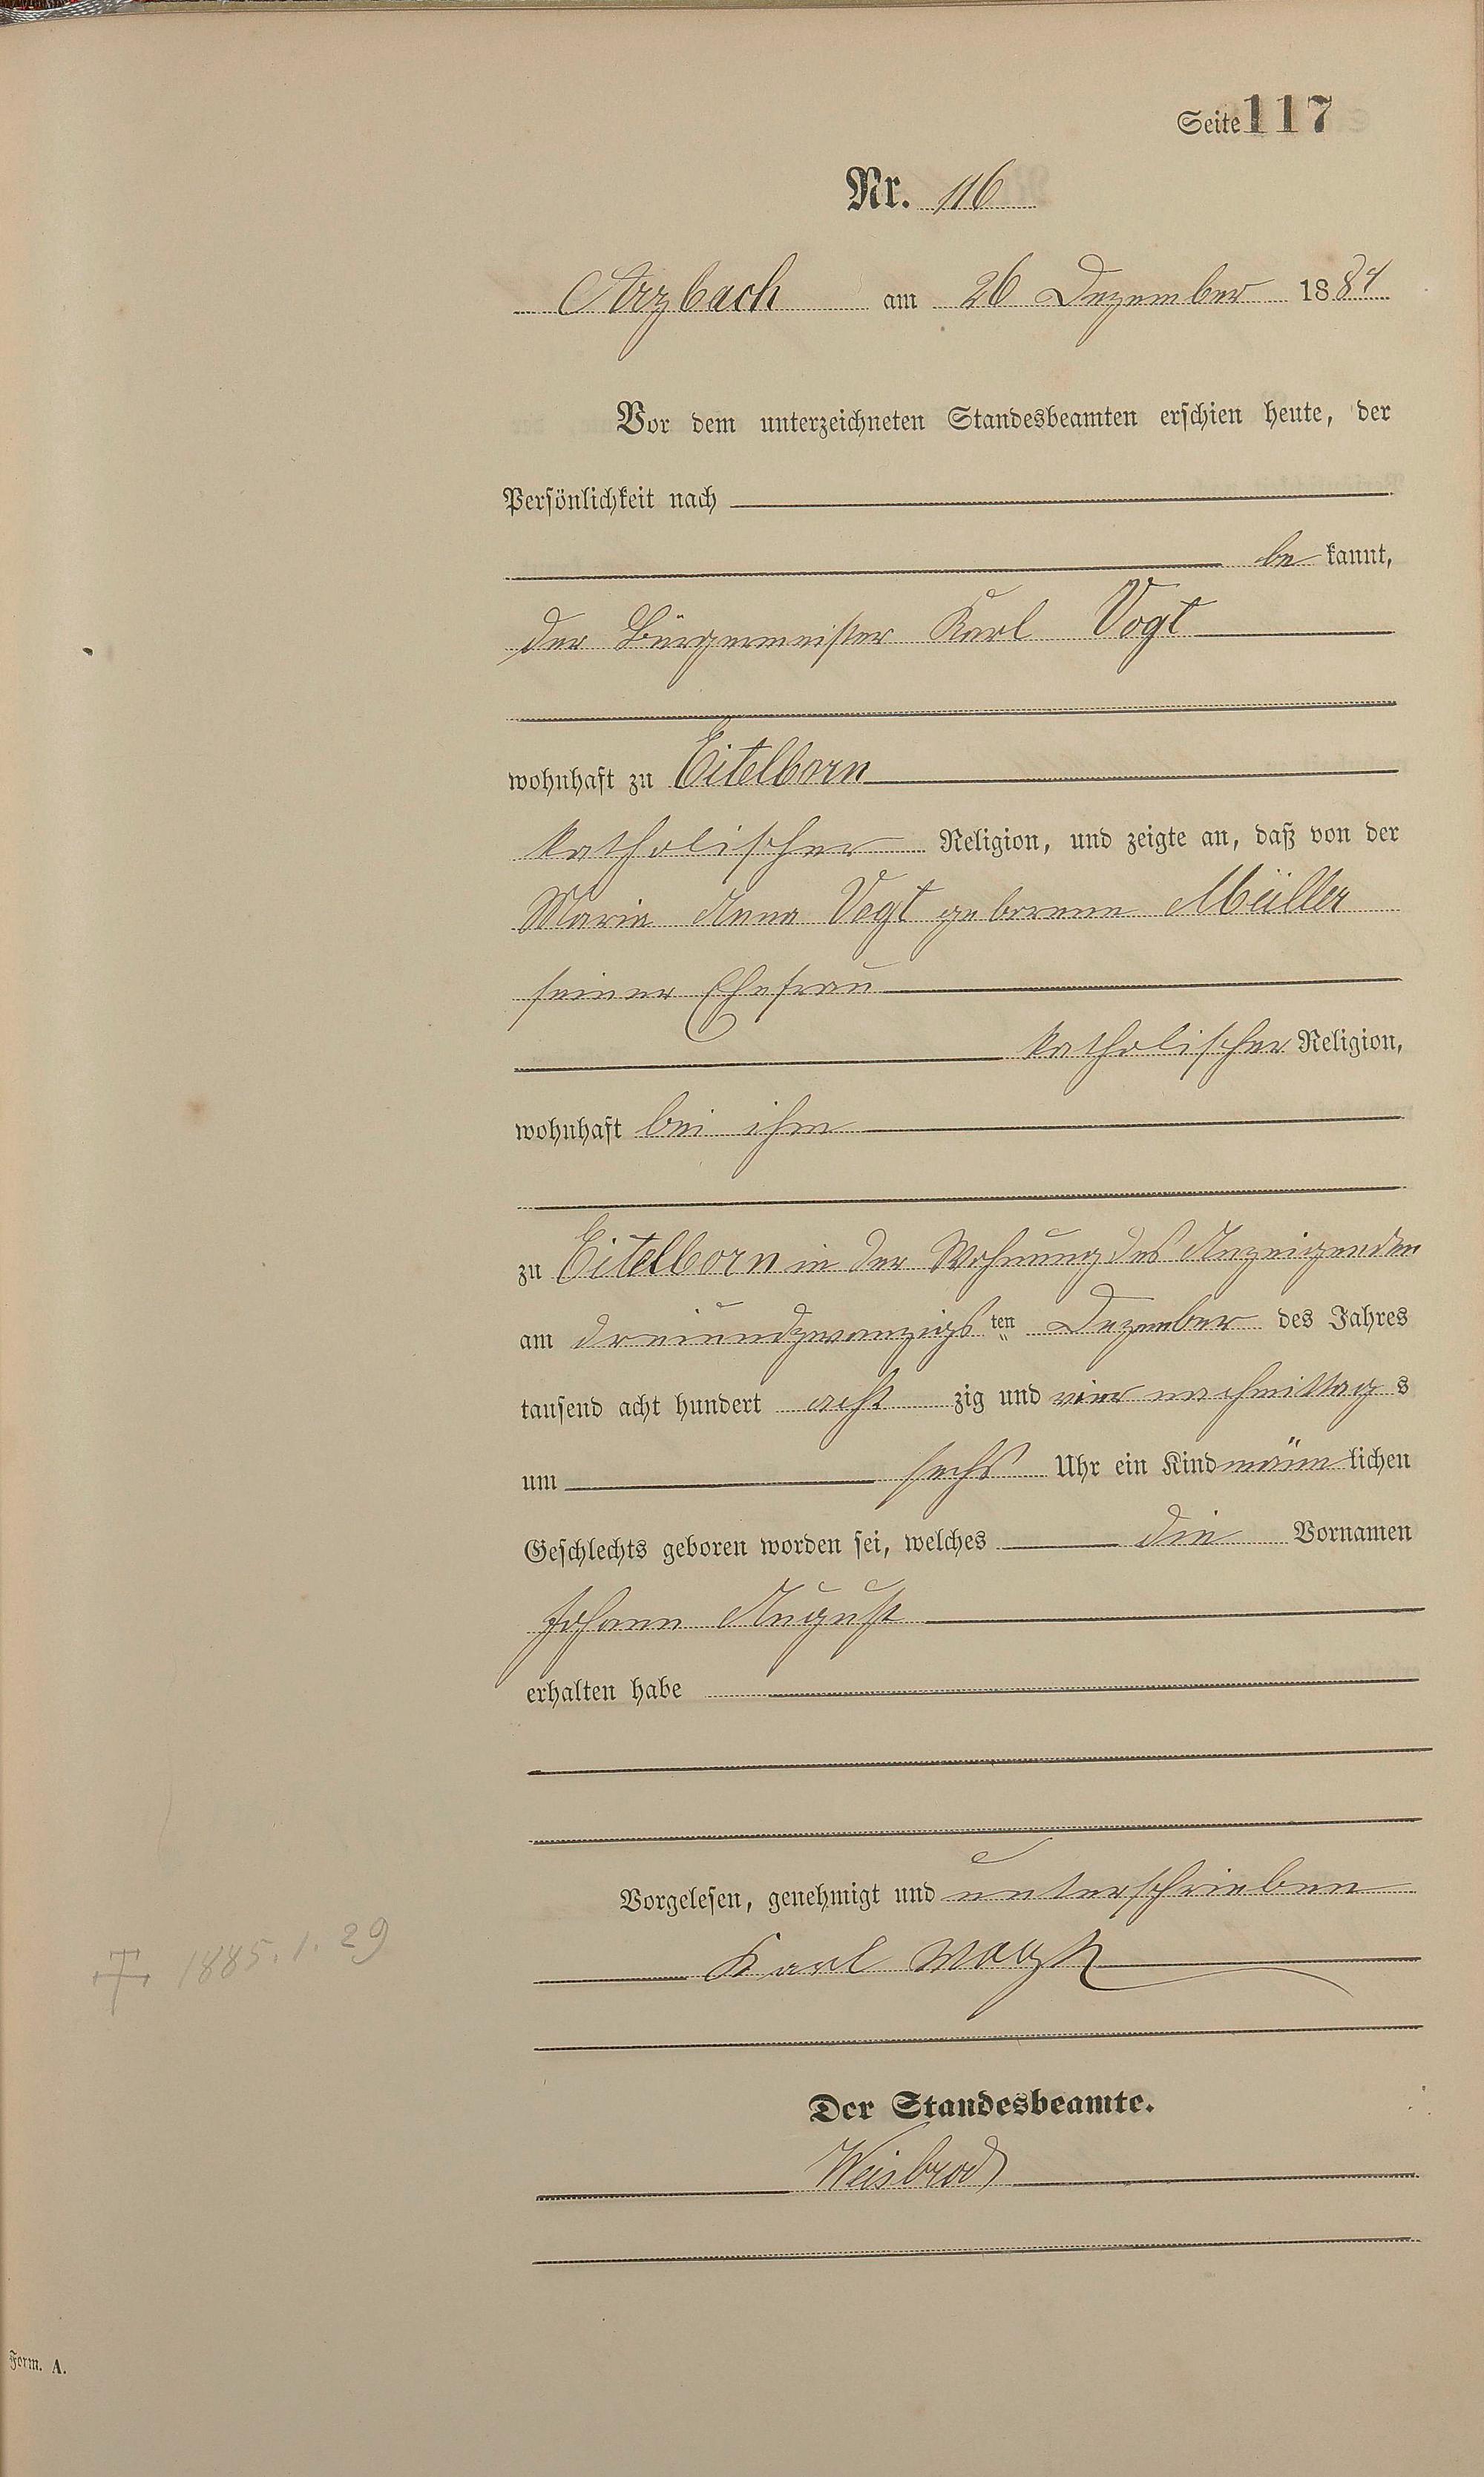 Seite 117
Nr. 116
Arzbach am 26 Dezember 1884
Vor dem unterzeichneten Standesbeamten erschien heute, der
Persönlichkeit nach
be kannt,
der Bürgermeister Karl Vogt
wohnhaft zu Eitelborn
katholischer Religion, und zeigte an, daß von der
Maria Anna Vogt geborene Müller
seiner Ehefrau
katholischer Religion,
wohnhaft bei ihm
zu Eitelborn in der Wohnung des Anzeigenden
am dreiundzwanzigs ten Dezember des Jahres
tausend acht hundert acht zig und vier nachmittag s
um sechs Uhr ein Kind männ lichen
Geschlechts geboren worden sei, welches die Vornamen
Johann August
erhalten habe
Vorgelesen, genehmigt und unterschrieben
† 1885. 1. 29
Karl
Der Standesbeamte.
Weisbrod
Form. A.